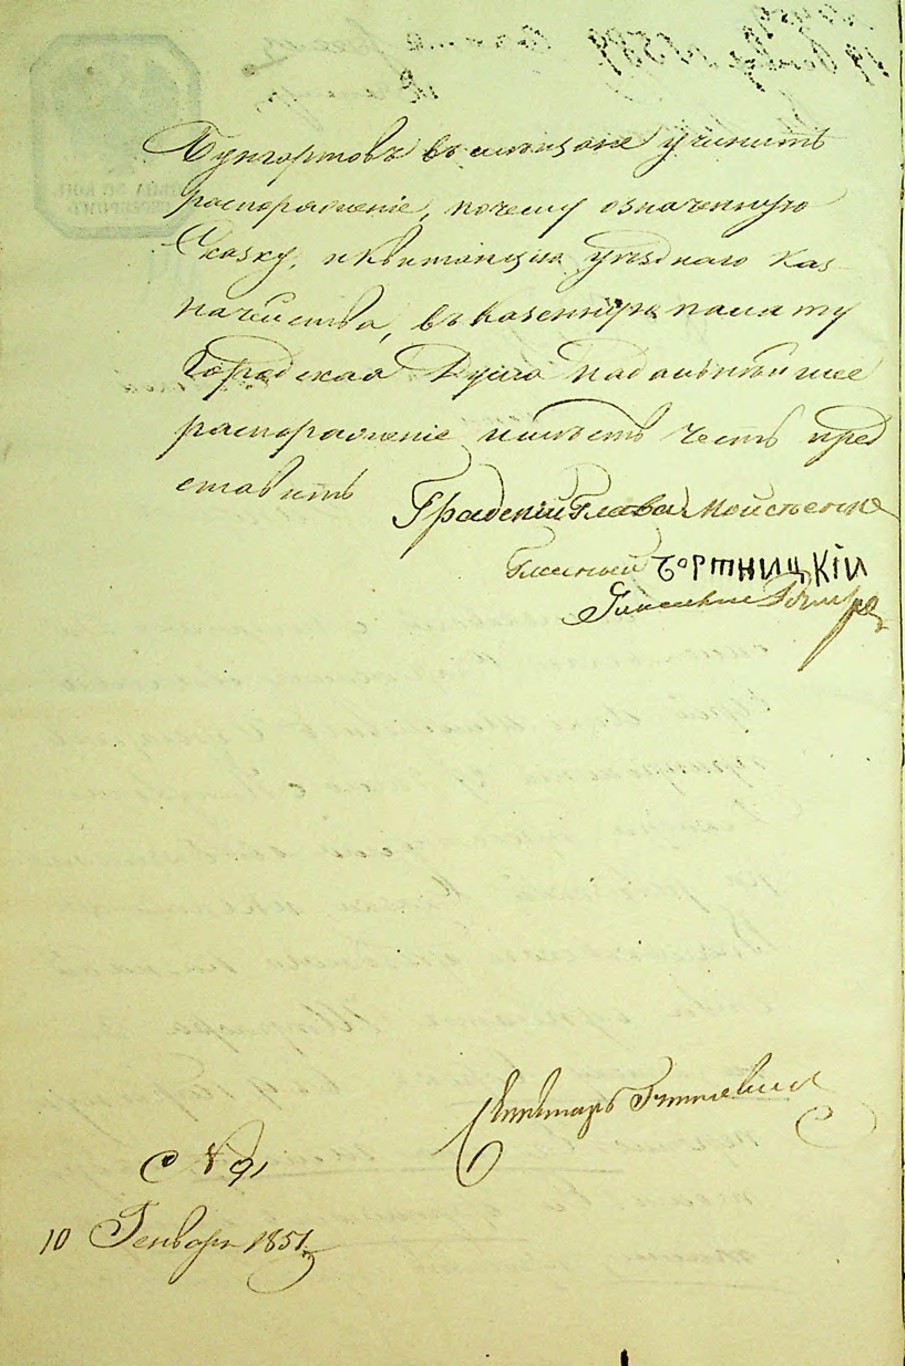 Бунгортовъ въ мѣщане учинить
распоряженіе, почему означенную
Сказку, и квитанцію уѣзднаго Каз
начейства, въ Казенную палату
Городская Дума на дальнѣйшее
распоряженіе имѣетъ честь пред
ставить
Градскій Глава
Гласный Бортницкій
Гласный
Секретарь
№ 91
10 Генваря 1851